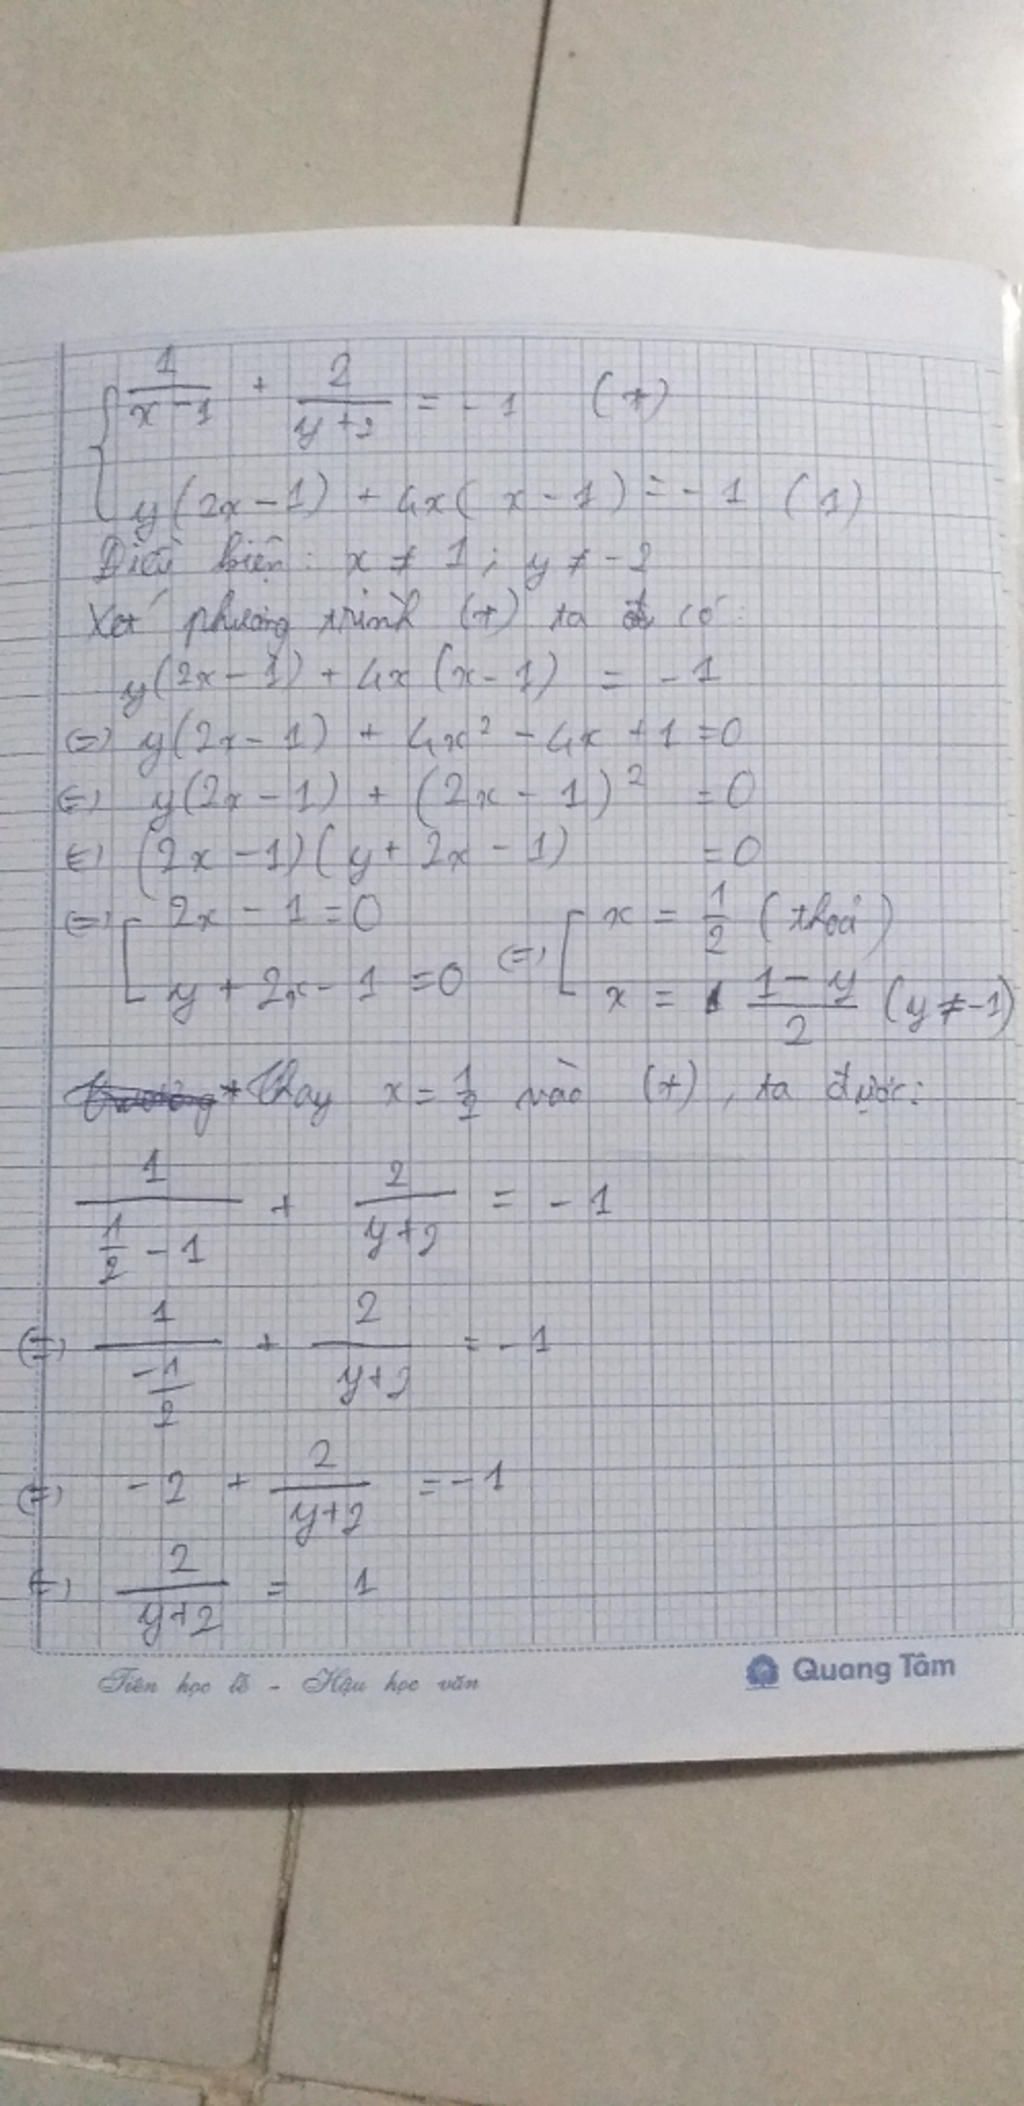 { 1/(x-1) + 2/(y+2) = -1 (*)
y(2x-1) + 4x(x-1) = -1 (1)
Điều kiện: x ≠ 1; y ≠ -2
Xét phương trình (*) ta có:
y(2x-1) + 4x(x-1) = -1
(=) y(2x-1) + 4x² - 4x + 1 = 0
(=) y(2x-1) + (2x-1)² = 0
(=) (2x-1)(y+2x-1) = 0
(=) [ 2x-1=0 (=) [ x = 1/2 (thoả)
y+2x-1=0 x = (1-y)/2 (y≠-1)
+ Thay x = 1/2 vào (*), ta được:
1/(1/2 - 1) + 2/(y+2) = -1
(=) 1/(-1/2) + 2/(y+2) = -1
(=) -2 + 2/(y+2) = -1
(=) 2/(y+2) = 1
Tiên học lễ - Hậu học văn
Quang Tâm